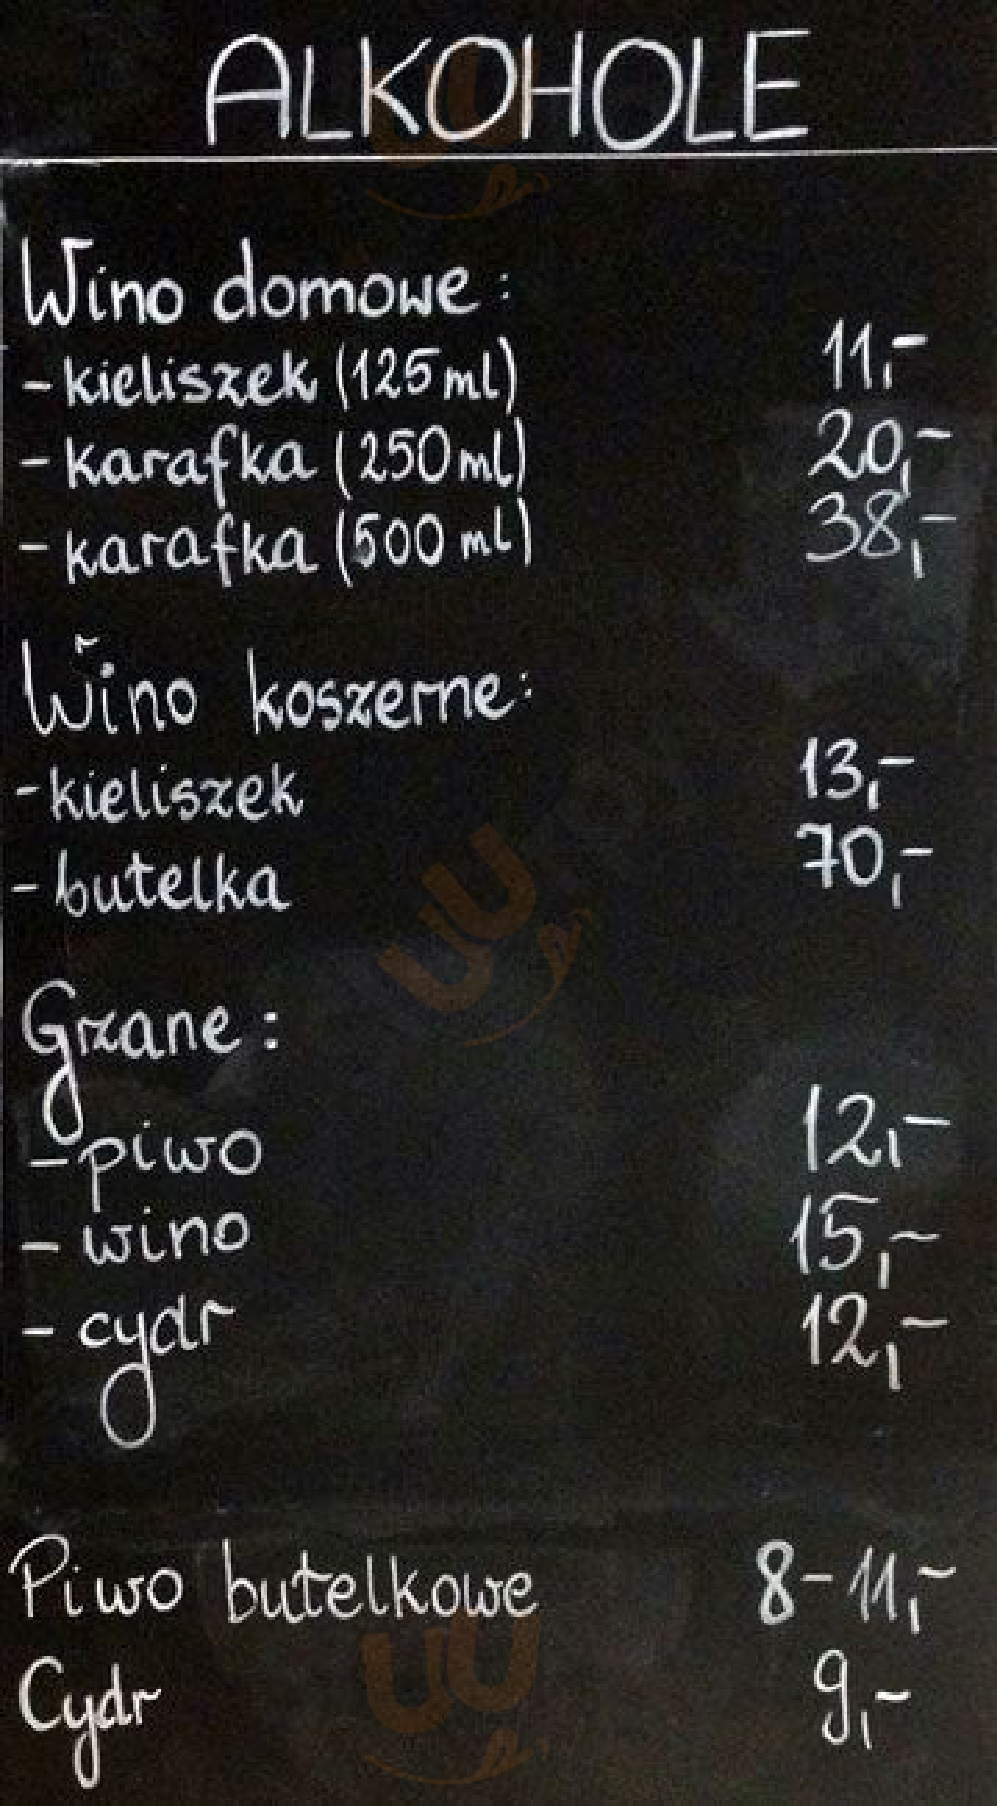 ALKOHOLE
Wino domowe:
- kieliszek (125 ml) 11,-
- karafka (250 ml) 20,-
- karafka (500 ml) 38,-
Wino koszerne:
- kieliszek 13,-
- butelka 70,-
Grzane:
- piwo 12,-
- wino 15,-
- cydr 12,-
Piwo butelkowe 8-11,-
Cydr 9,-